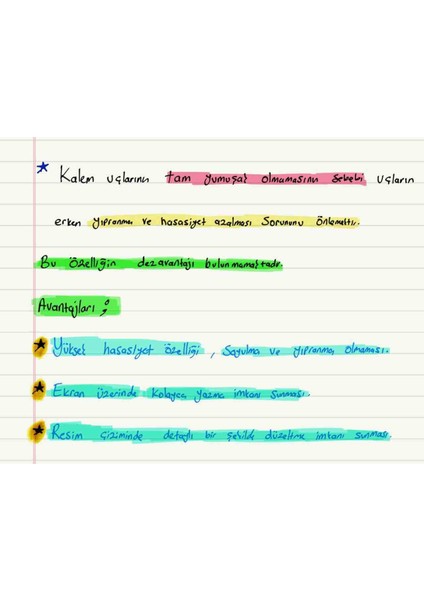 Kalem uçlarının tam yumuşak olmamasının sebebi uçların
erken yıpranma ve hassasiyet azalması sorununu önlemektir.
Bu özelliğin dezavantajı bulunmamaktadır.
Avantajları ;
Yüksek hassasiyet özelliği , Soyulma ve yıpranma olmaması.
Ekran üzerinde kolayca yazma imkanı sunması.
Resim çiziminde detaylı bir şekilde düzeltme imkanı sunması.